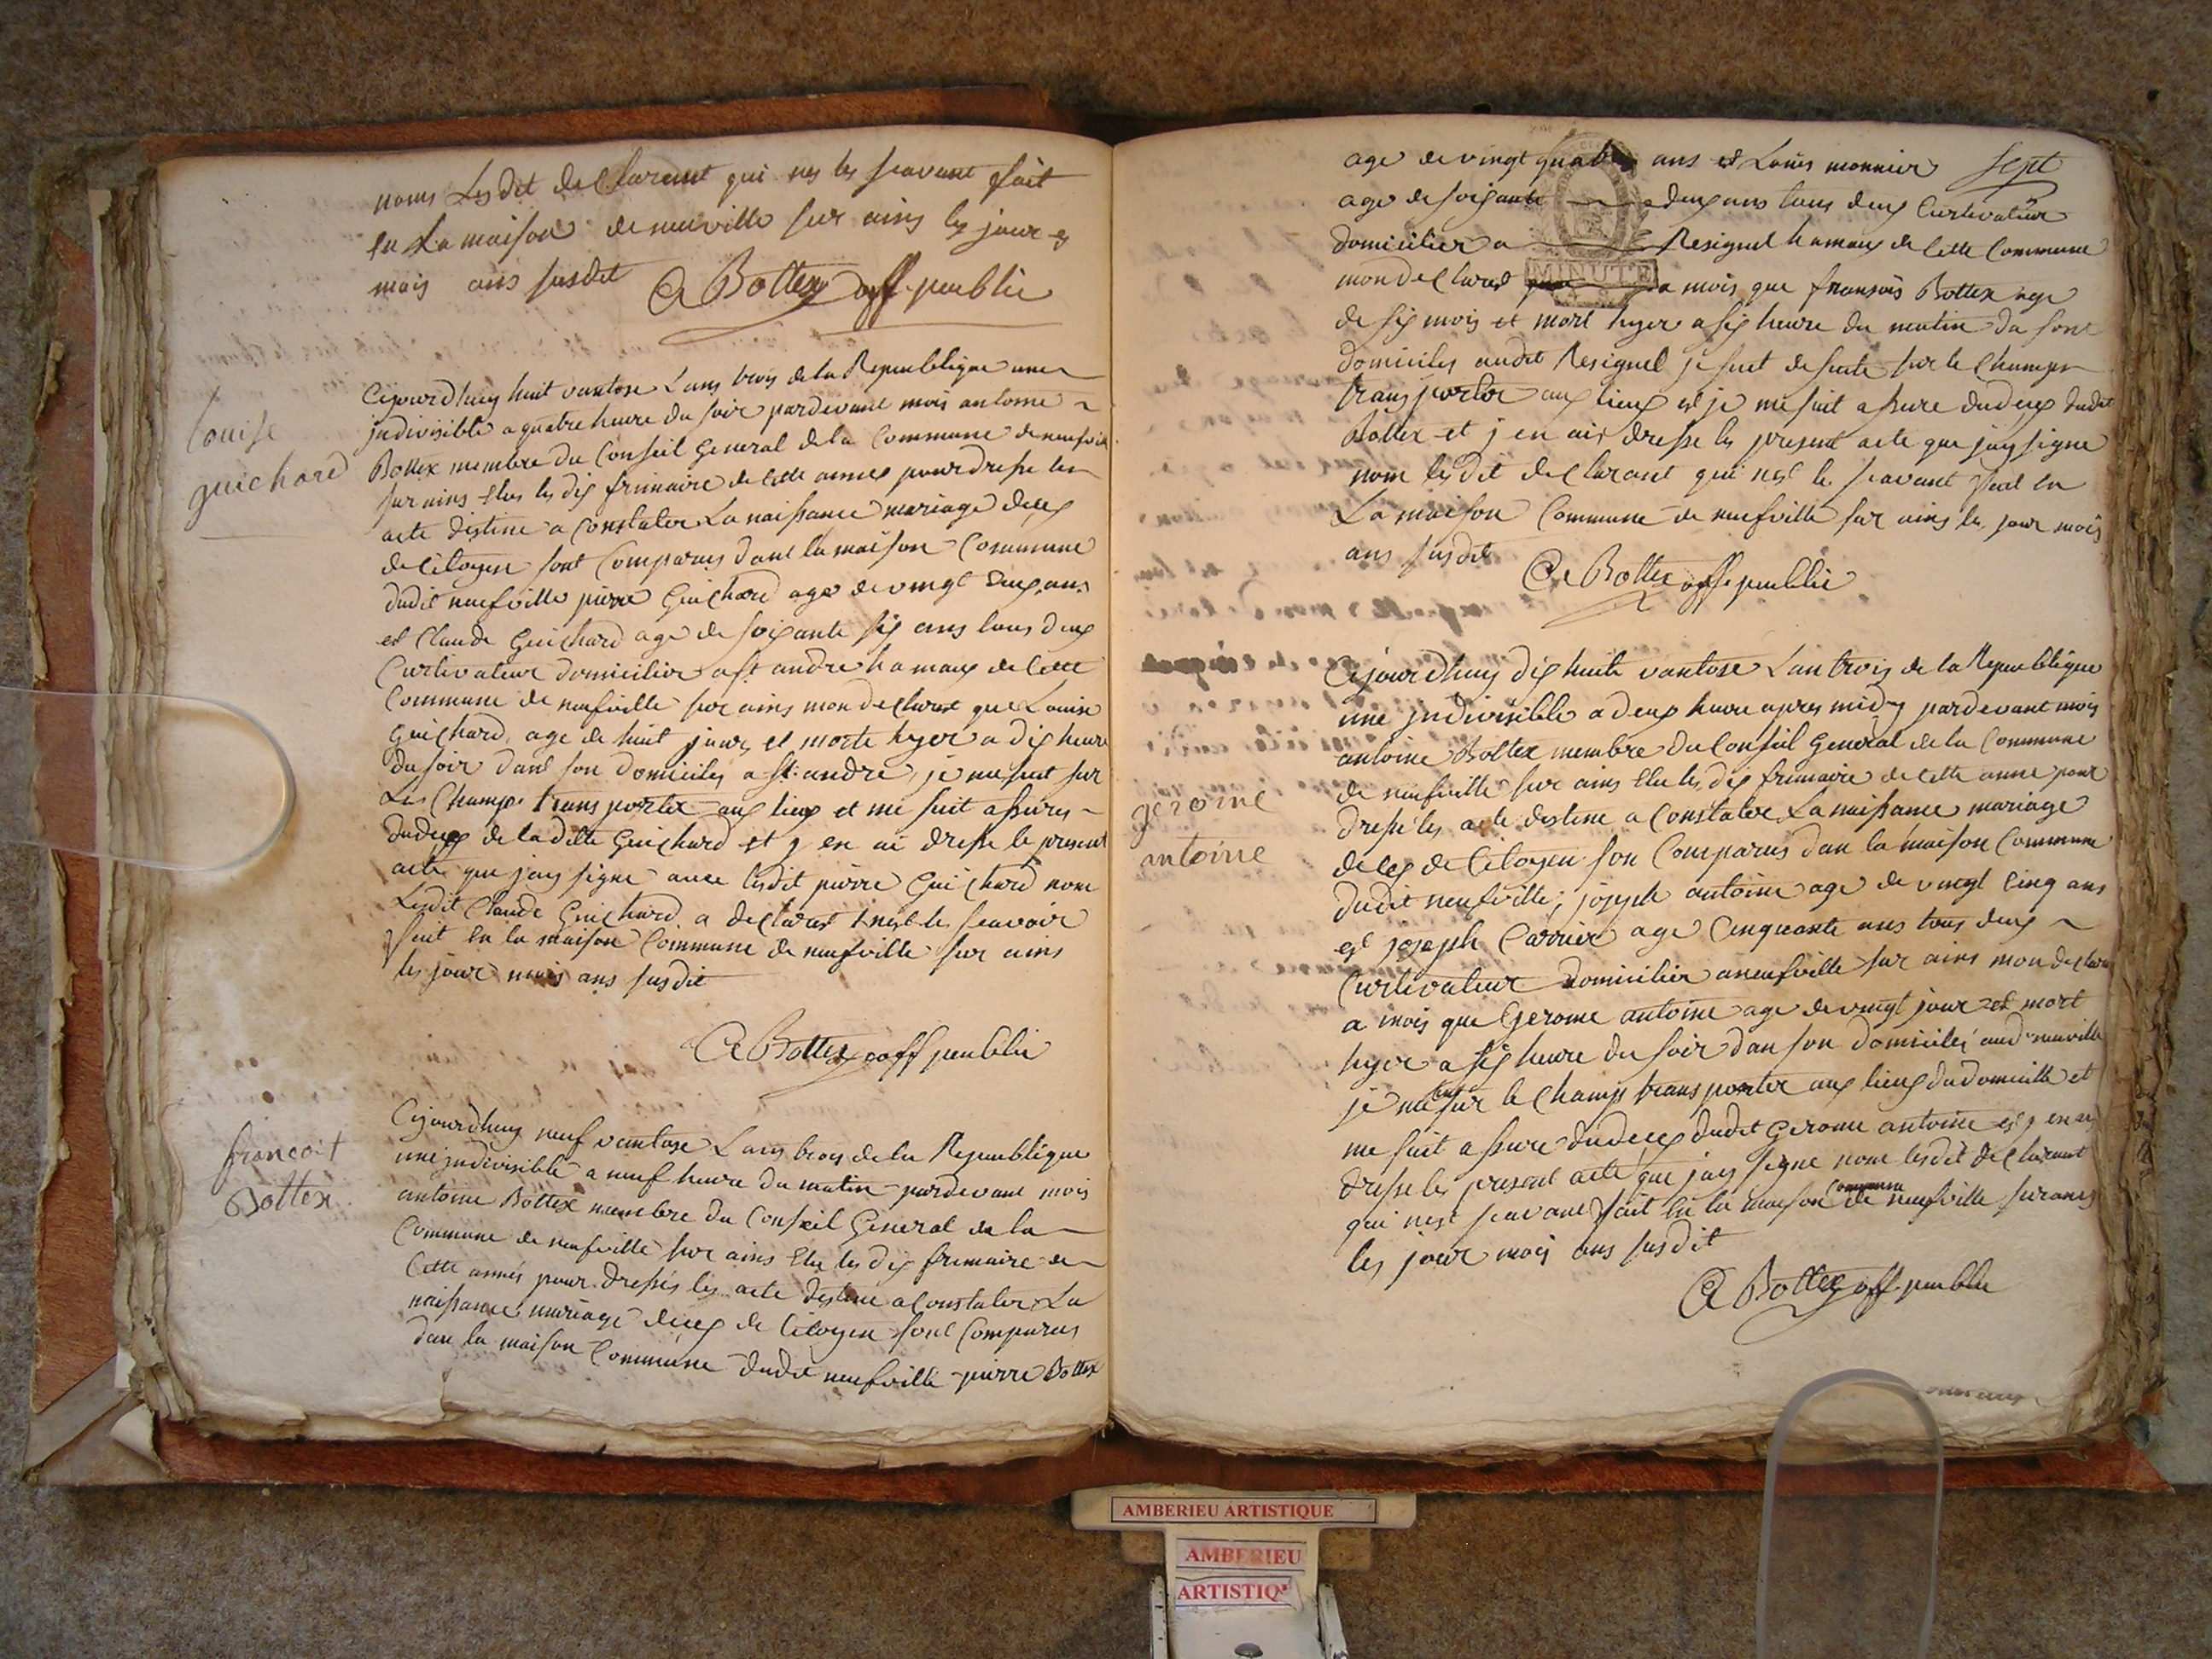 noms Lesdit declarant qui nes les scavant fait
en La maison de neuville sur ains les jour et
mois ans susdit A Bottex off publie
Louise
guichard
Cejourdhuy huit vantose Lans trois de la Republique une
indivisible a quatre heure du soir pardevant mois antoine
Bottex membre du Conseil General de la Commune de neufville
sur ains Elus les dix frimaire de cette annes pour dresse les
acte destine a constater La naissance mariage deces
de Citoyen sont Comparus dans la maison Commune
dudit neufville pierre Guichard age de vingt deux ans
et Claude Guichard age de soixante six ans tous deux
Curtivateur domicilier a st andre hamaux de Cette
Commune de neufville sur ains mon declarat que Louise
Guichard age de huit jours et morte hyer a dix heure
du soir dans son domiciles a st andre, je me suit sur
Les Champs transporter aux lieux et me suit assures
dudeces de ladilte Guichard et j en ai dresse le present
acte que jay signe avec lesdit pierre Guichard nom
Lesdit Claude Guichard a declarat nest le scavoir
fait En la maison Commune de neufville sur ains
les jour mois ans susdit
A Bottex off peublie
francoit
Bottex
Cejourdhuy neuf vantose Lans trois de la Republique
une jndivisible a neuf heure du matin pardevant mois
antoine Bottex membre du Conseil General de la
Commune de neufville sur ains Elu les dix frimaire de
Cette annés pour dressés les acte destine a Constater La
naissance mariage deces de Citoyen sont Comparus
dans la maison Commune dudit neufville pierre Bottex
age de vingt quatre ans et Louis monnier sept
age de soixante deux ans tous deux Curtivateur
domicilier a Resignel hamaux de Cette Commune
mon declarat a mois que fransois Bottex age
MINUTE
de six mois et mort hyer a six heure du matin da sont
domiciles audit Resignel je suit de suite sur le Champs
transporter aux lieux et je me suit assure dudeces dudit
Bottex et j en ais dresse les present acte que jay signe
nom lesdit declarant qui nest le scavant fait en
La maison Commune de neufville sur ains les jour mois
ans susdit A Bottex offe peublie
gerome
antoine
Cejourdhuy dix huite vantose Lan trois de la Republique
une jndivisible a deux heure apres midy pardevant mois
antoine Bottex membre du Conseil General de la Commune
de neufville sur ains Elu les dix frimaire de cette anne pour
dresse les acte destine a Constater La naissance mariage
deces de Citoyen son Comparus dan la maison Commune
dudit neufville, joseph antoine age de vingt Cinq ans
et joseph Carrier age Cinquante ans tous deux
Curtivateur domicilier a neufville sur ains mon declara
a mois que Gerome antoine age de vingt jour est mort
hyer a six heure du soir dan son domiciles aud neuville
je me suit sur le Champs transporter aux lieux du domicille et
me suit assure dudeces dudit Gerome antoine et j en ai
dresse les present acte que jay signe nom lesdit declarant
qui nest scavant fait En la maison Commune de neufville sur ains
les jour mois ans susdit
A Bottex off peublie
AMBERIEU ARTISTIQUE
AMBERIEU
ARTISTIQ